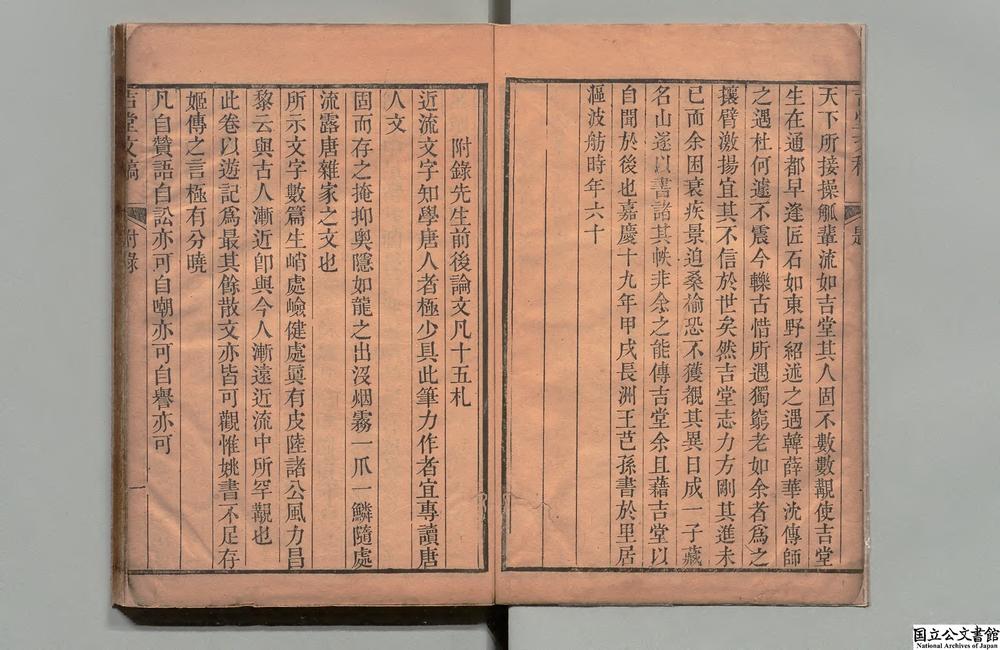 天下所接操觚輩流如吉堂其人固不數數覯使吉堂
生在通都早逢匠石如東野紹述之遇韓薛華沈傳師
之遇杜何遽不震今轢古惜所遇獨窮老如余者爲之
攘臂激揚宜其不信於世矣然吉堂志力方剛其進未
已而余困衰疾景迫桑榆恐不獲覩其異日成一子藏
名山遂以書諸其帙非余之能傳吉堂余且藉吉堂以
自聞於後也嘉慶十九年甲戌長洲王芑孫書於里居
漚波舫時年六十
附錄先生前後論文凡十五札
近流文字知學唐人者極少具此筆力作者宜專讀唐
人文
固而存之掩抑奧隱如龍之出沒烟霧一爪一鱗隨處
流露唐雜家之文也
所示文字數篇生峭處嶮健處眞有皮陸諸公風力昌
黎云與古人漸近卽與今人漸遠近流中所罕覯也
此卷以遊記爲最其餘散文亦皆可觀惟姚書不足存
嫗傳之言極有分曉
凡自贊語自訟亦可自嘲亦可自譽亦可
吉堂文稿
附錄
一
国立公文書館
National Archives of Japan